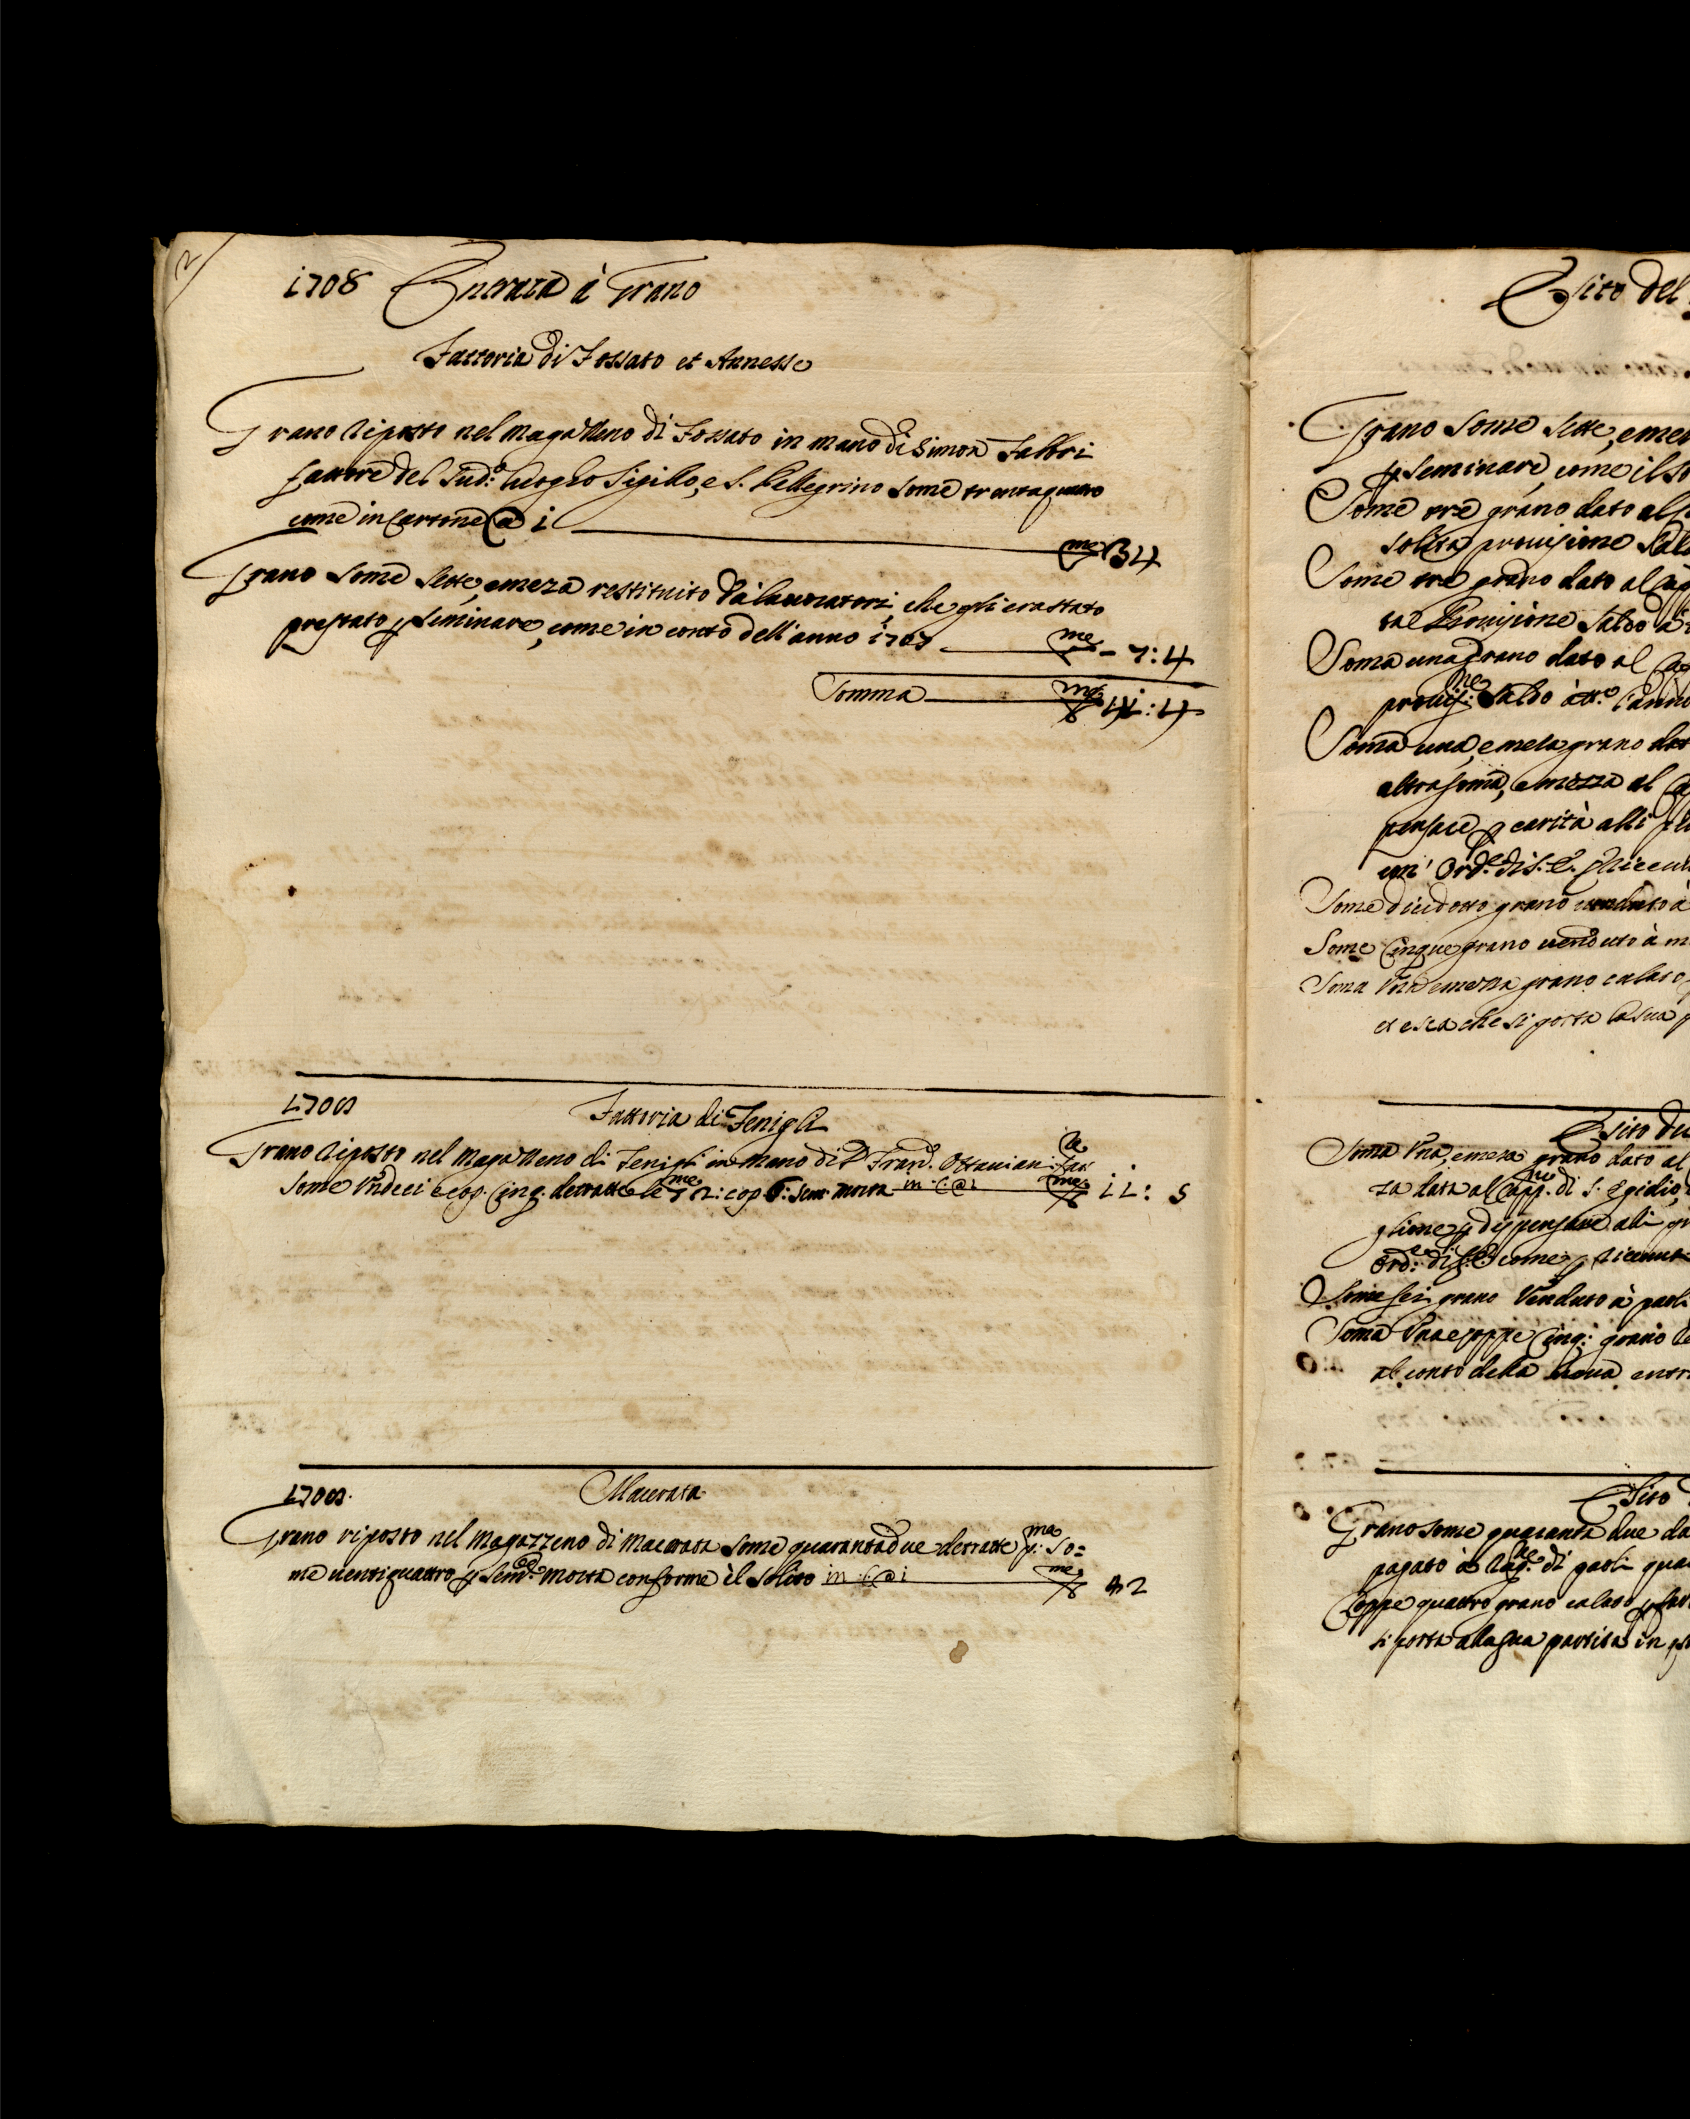 2
1708 Entrata à Grano
Fattoria di Fossato et Annesse
Grano riposto nel Magazzeno di Fossato in mano di Simon Fabbri
fattore del sud.º luogho Sigillo, e S. Pellegrino some trentaquattro
come in Cartone @ i
me 34
Grano some sette, e meza restituito da lauoratori, che gli era stato
prestato p seminare, come in conto dell'anno 1707
me - 7:4
Somma me 41:4
1708 Fattoria di Fenigli
Grano riposto nel Magazzeno di Fenigli in mano di D Fran.º Ottauiani fat.re
some Vndeci e cop. Cinq. detratte le me 72: cop 6: sem morta in C: @ i me 11: 5
1708. Macerata
Grano riposto nel Magazzeno di Macerata some quarantadue detratte p.ma so=
me uentiquattro p sem. morta conforme il solito in C: @ i me 42
Esito del
Grano some sette, e me
p seminare, come il so
Some tre grano dato al
solita prouisione sal
Some tre grano dato al Ca
ta Prouisione saldo à
Soma una grano dato al Ca
prouis.ne saldo à tt.º l'anno
Soma una, e meza grano da
altra soma, e mezza al Ca
pensare p carità alli
un' Ord.e di S. E.
Some dieidotto grano uenduto à
Some Cinque grano uenduto à m
Soma Vna e mezza grano calato
et esca che si porta la sua p
Esito du
Soma Vna, e meza grano dato al
za data al Capp.no di S. Egidio,
glione p dispensare alli
Ord.e di S. E. come p riceuut
Some sei grano Venduto à paoli
Soma Vna e coppe Cinq: grano
al conto della nuoua entr
Esito
Grano some quaranta due da
pagato à rag.ne di paoli qua
Coppe quattro grano calato p
si porta alla sua partita in